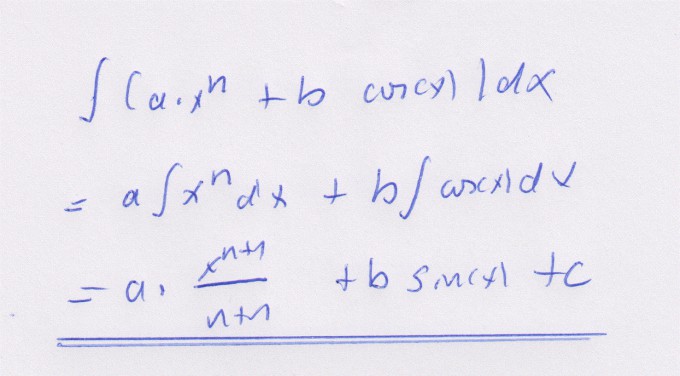 ∫(a·xⁿ + b cos(x))dx
= a∫xⁿdx + b∫cos(x)dx
= a· xⁿ⁺¹/(n+1) + b sin(x) + c